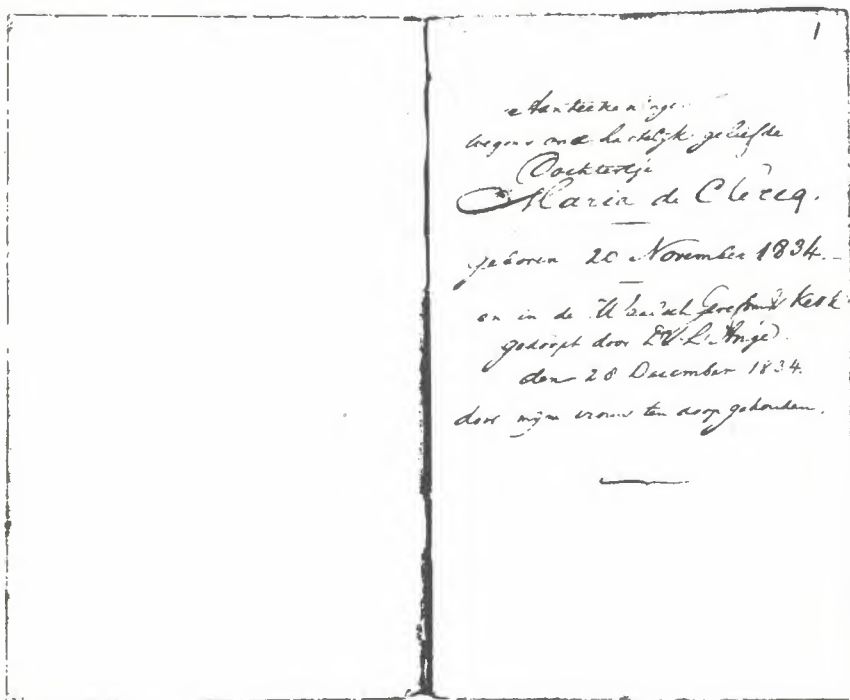 1
Aanteekeninge
wegens ons hartelijk geliefde
Dochtertje
Maria de Clercq.
geboren 20 November 1834.
en in de Waalsch Gereformd Kerk
gedoopt door Ds L'Ange
den 28 December 1834.
door mijne vrouw ten doop gehouden.